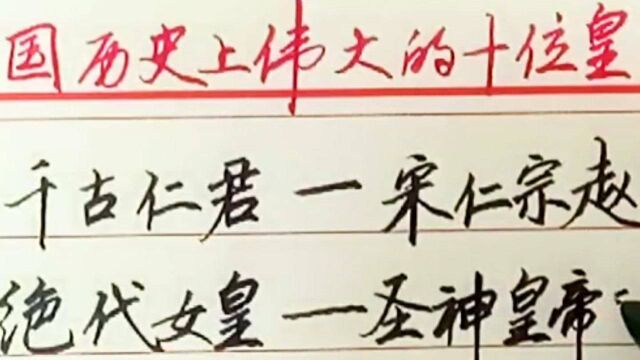 国历史上伟大的十位皇
千古仁君一宋仁宗赵
绝代女皇一圣神皇帝